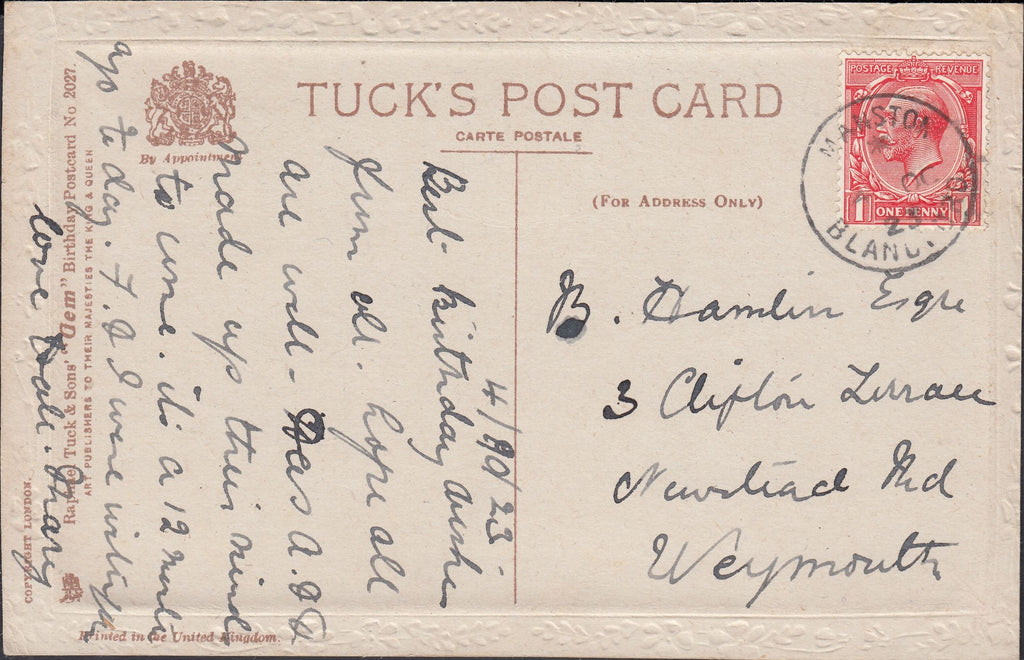 TUCK'S POST CARD
CARTE POSTALE
By Appointment
(FOR ADDRESS ONLY)
Raphael Tuck & Sons' "Gem" Birthday Postcard No 2027.
ART PUBLISHERS TO THEIR MAJESTIES THE KING & QUEEN
COPYRIGHT LONDON.
Printed in the United Kingdom.
POSTAGE REVENUE
ONE PENNY
1
MANSTON
BLAN
23
4/90/23
Best birthday wishes
from all. hope all
are well - Has A. &
made up their minds
to come. its a 12 month
ago to day. F. & I were with you
love to all. Mary
B. Hamlin Esqre
3 Clifton Terrace
Newstead Rd
Weymouth